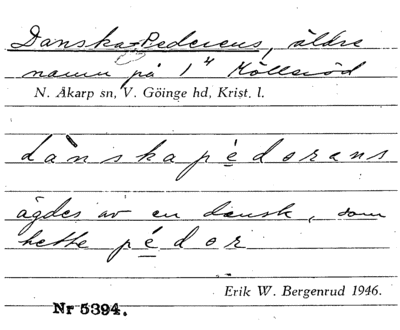 Danska-Pederens, äldre
namn på 1⁴ Kölleröd
N. Åkarp sn, V. Göinge hd, Krist. l.
dànskapédorans
ägdes av en dansk, som
hette pédor
Erik W. Bergenrud 1946.
Nr 5394.